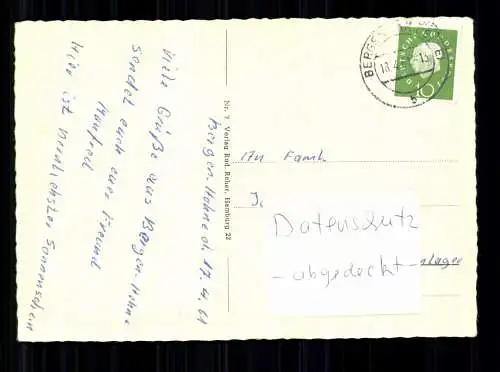 Bergen-Hohne d. 17.4.61
Viele Grüße aus Bergen-Hohne
sendet euch euer Freund
Manfred
Hier ist herrlichster Sonnenschein
Nr. 7. Verlag Rud. Reher, Hamburg 22
BERGEN
18.4.
b
DEUTSCHE BUNDESPOST
10
An Famh
Datenschutz
- abgedeckt -